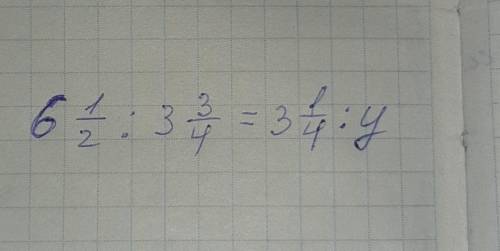 6 1/2 : 3 3/4 = 3 1/4 : y